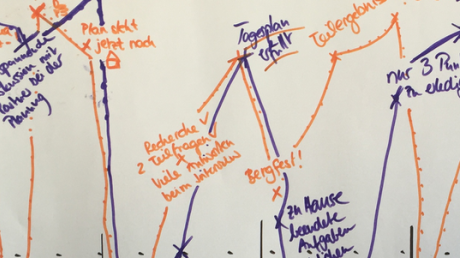 Plan steht
jetzt noch
spannende
mit
bei der
Planung
Tagesplan
erfüllt
Teilergebnis
nur 3 Pun
zu erledig
Recherche ✓
2 Teilfragen ✓
+
Viele Antworten
beim Interview
Bergfest!
zu Hause
beendete
Aufgaben